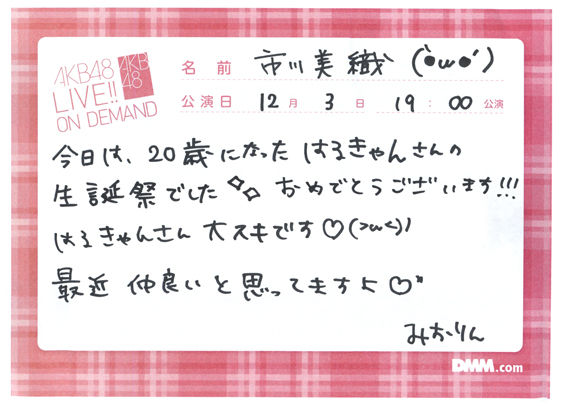 AKB48
LIVE!!
ON DEMAND
AKB
48
名前 市川美織 (●'ω'●)
公演日 12月 3日 19:00公演
今日は、20歳になった はるきゃんさんの
生誕祭でした おめでとうございます!!!
はるきゃんさん 大スキです♡(>ω<)ノ
最近 仲良いと思ってますよ♡"
みおりん
DMM.com